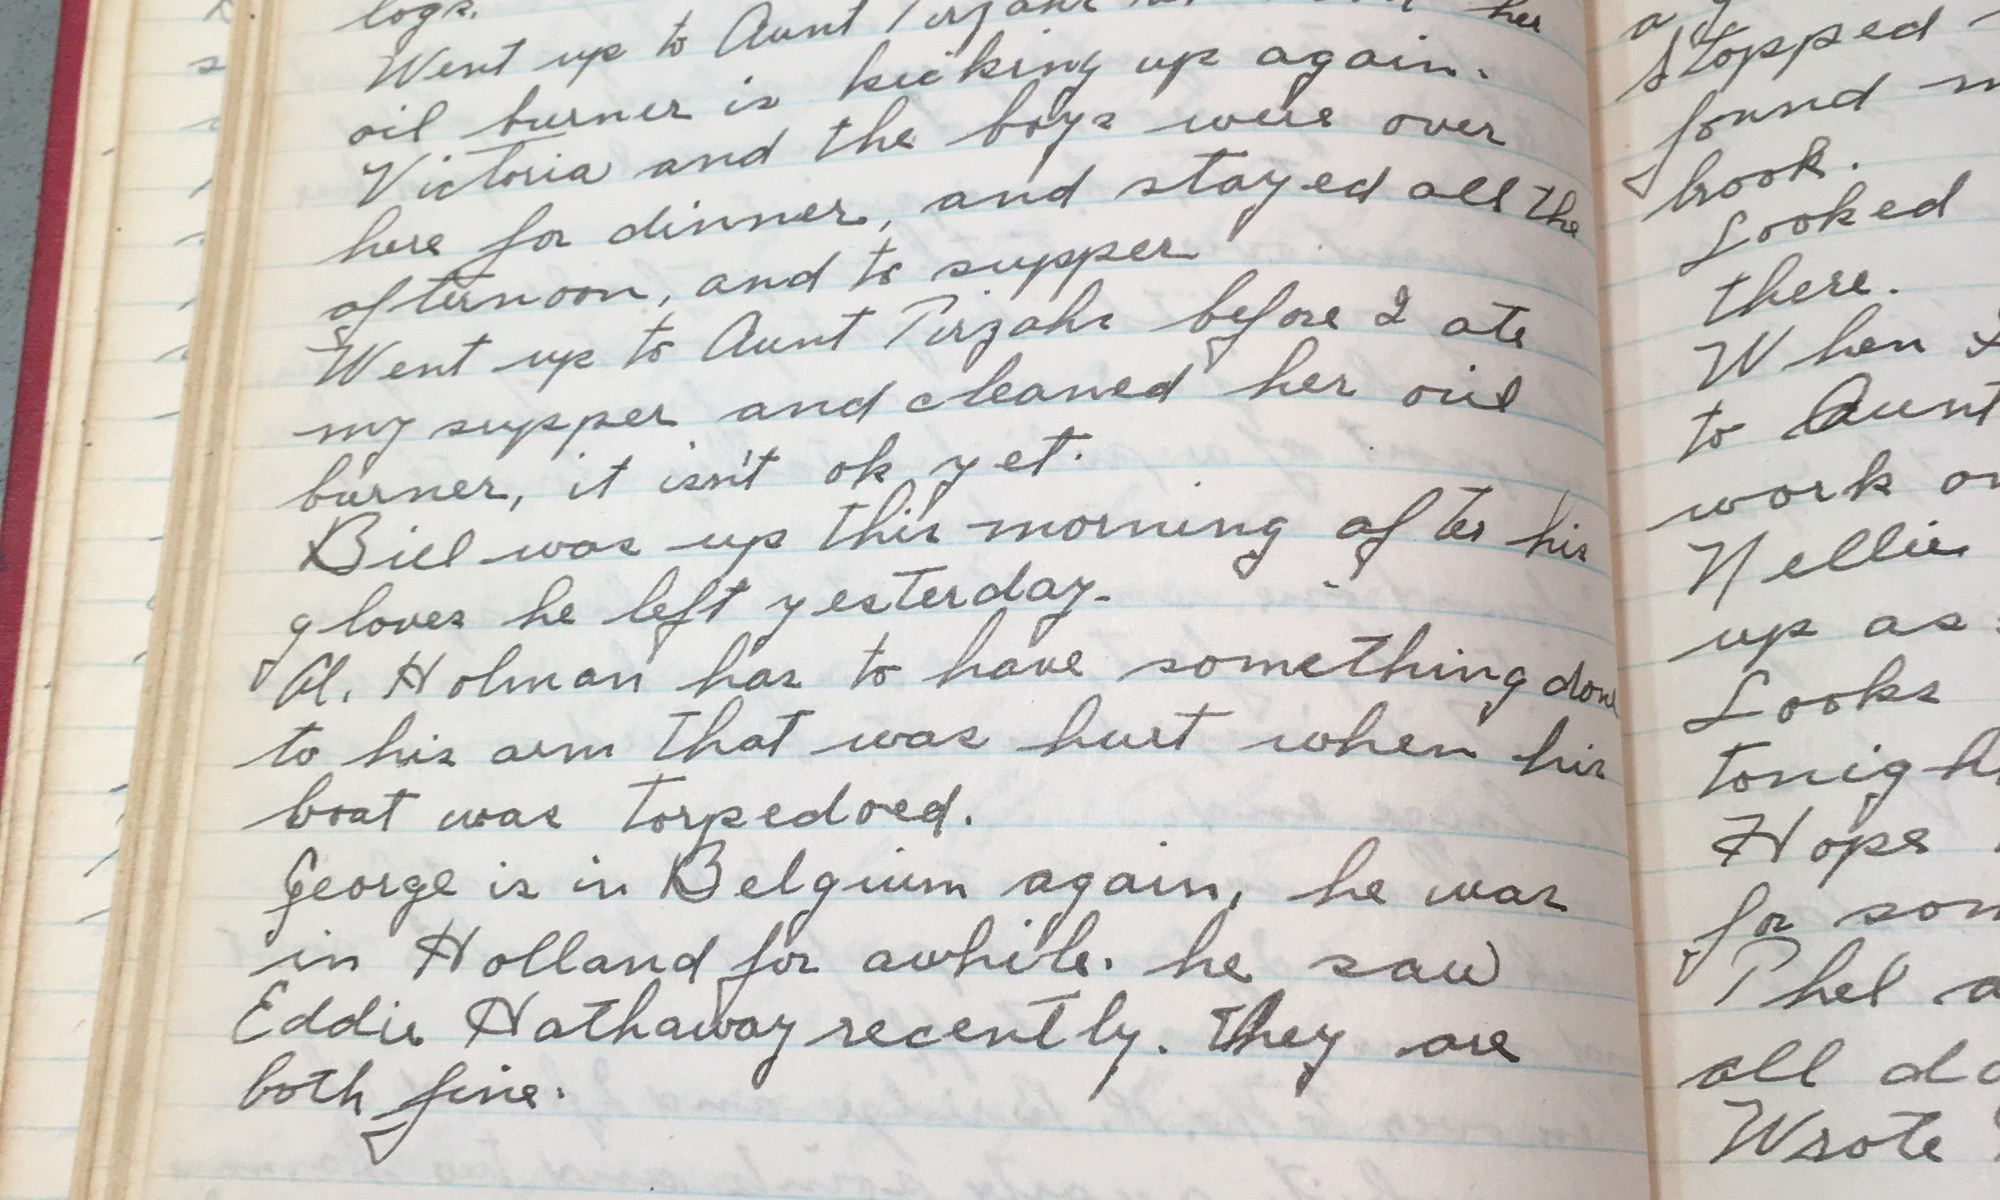 logs.
Went up to Aunt Tirzahs her
oil burner is kicking up again.
Victoria and the boys were over
here for dinner, and stayed all the
afternoon, and to supper
Went up to Aunt Tirzahs before I ate
my supper and cleaned her oil
burner, it isn't ok yet.
Bill was up this morning after his
gloves he left yesterday.
Al. Holman has to have something done
to his arm that was hurt when his
boat was torpedoed.
George is in Belgium again, he was
in Holland for awhile. he saw
Eddie Hathaway recently. They are
both fine.
Stopped
found
book.
Looked
there.
When
to Aunt
work
Nellie
up as
Looks
Hope
for
Phel
all
Wrote